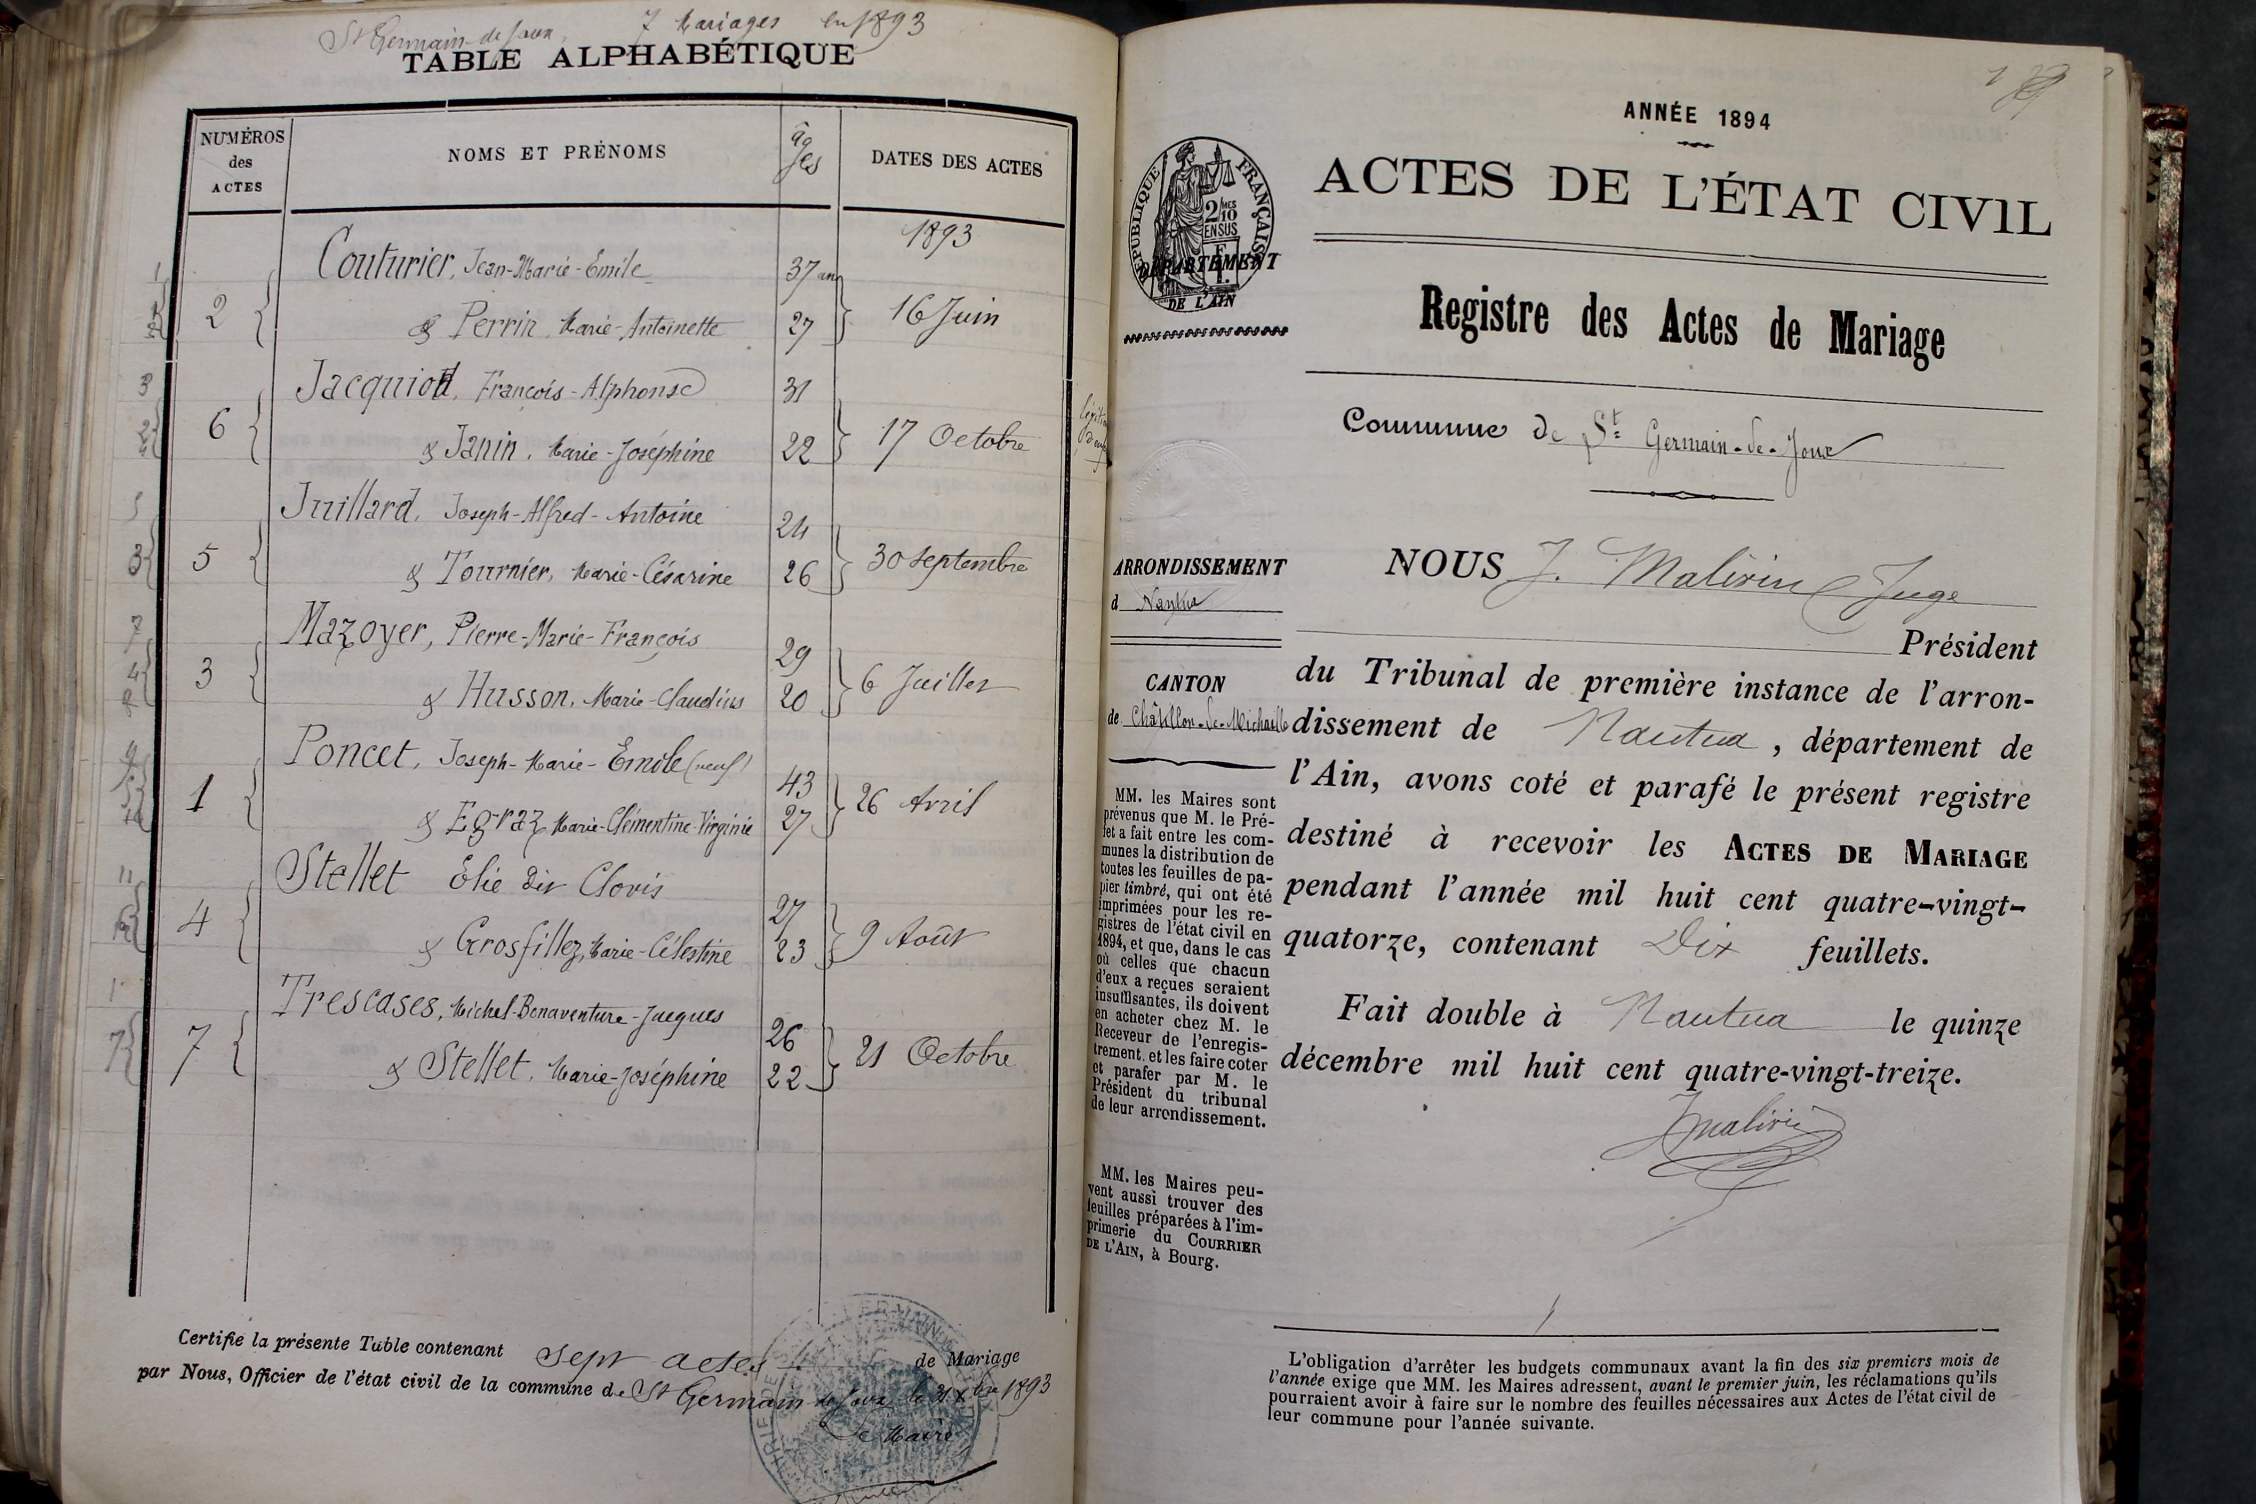 St Germain-de-Joux, 7 Mariages en 1893
TABLE ALPHABÉTIQUE
NUMÉROS
des
ACTES
NOMS ET PRÉNOMS
âges
DATES DES ACTES
1893
Couturier, Jean-Marie-Emile 37 ans
2 16 Juin
& Perrin, Marie-Antoinette 27
Jacquiod, François-Alphonse 31
6 17 Octobre
& Janin, Marie-Joséphine 22
Juillard, Joseph-Alfred-Antoine 24
5 30 septembre
& Tournier, Marie-Césarine 26
Mazoyer, Pierre-Marie-François 29
3 6 Juillet
& Husson, Marie-Claudius 20
Poncet, Joseph-Marie-Emile (veuf) 43
1 26 Avril
& Egraz, Marie-Clémentine-Virginie 27
Stellet Elie dit Clovis 27
4 9 Août
& Grosfillez, Marie-Célestine 23
Trescases, Michel-Bonaventure-Jacques 26
7 21 Octobre
& Stellet, Marie-Joséphine 22
Certifie la présente Table contenant sept actes de Mariage
par Nous, Officier de l'état civil de la commune de St Germain-de-Joux, le 31 Xbre 1893
Le Maire
ANNÉE 1894
ACTES DE L'ÉTAT CIVIL
RÉPUBLIQUE FRANÇAISE
2/10MES
EN SUS
DÉPARTEMENT
DE L'AIN
Registre des Actes de Mariage
Commune de St Germain-de-Joux
ARRONDISSEMENT
d Nantua
CANTON
de Châtillon-de-Michaille
MM. les Maires sont
prévenus que M. le Pré-
fet a fait entre les com-
munes la distribution de
toutes les feuilles de pa-
pier timbré, qui ont été
imprimées pour les re-
gistres de l'état civil en
1894, et que, dans le cas
où celles que chacun
d'eux a reçues seraient
insuffisantes, ils doivent
en acheter chez M. le
Receveur de l'enregis-
trement et les faire coter
et parafer par M. le
Président du tribunal
de leur arrondissement.
MM. les Maires peu-
vent aussi trouver des
feuilles préparées à l'im-
primerie du COURRIER
DE L'AIN, à Bourg.
NOUS J. Malivin Juge
Président
du Tribunal de première instance de l'arron-
dissement de Nantua, département de
l'Ain, avons coté et parafé le présent registre
destiné à recevoir les ACTES DE MARIAGE
pendant l'année mil huit cent quatre-vingt-
quatorze, contenant Dix feuillets.
Fait double à Nantua le quinze
décembre mil huit cent quatre-vingt-treize.
JMalivin
L'obligation d'arrêter les budgets communaux avant la fin des six premiers mois de
l'année exige que MM. les Maires adressent, avant le premier juin, les réclamations qu'ils
pourraient avoir à faire sur le nombre des feuilles nécessaires aux Actes de l'état civil de
leur commune pour l'année suivante.